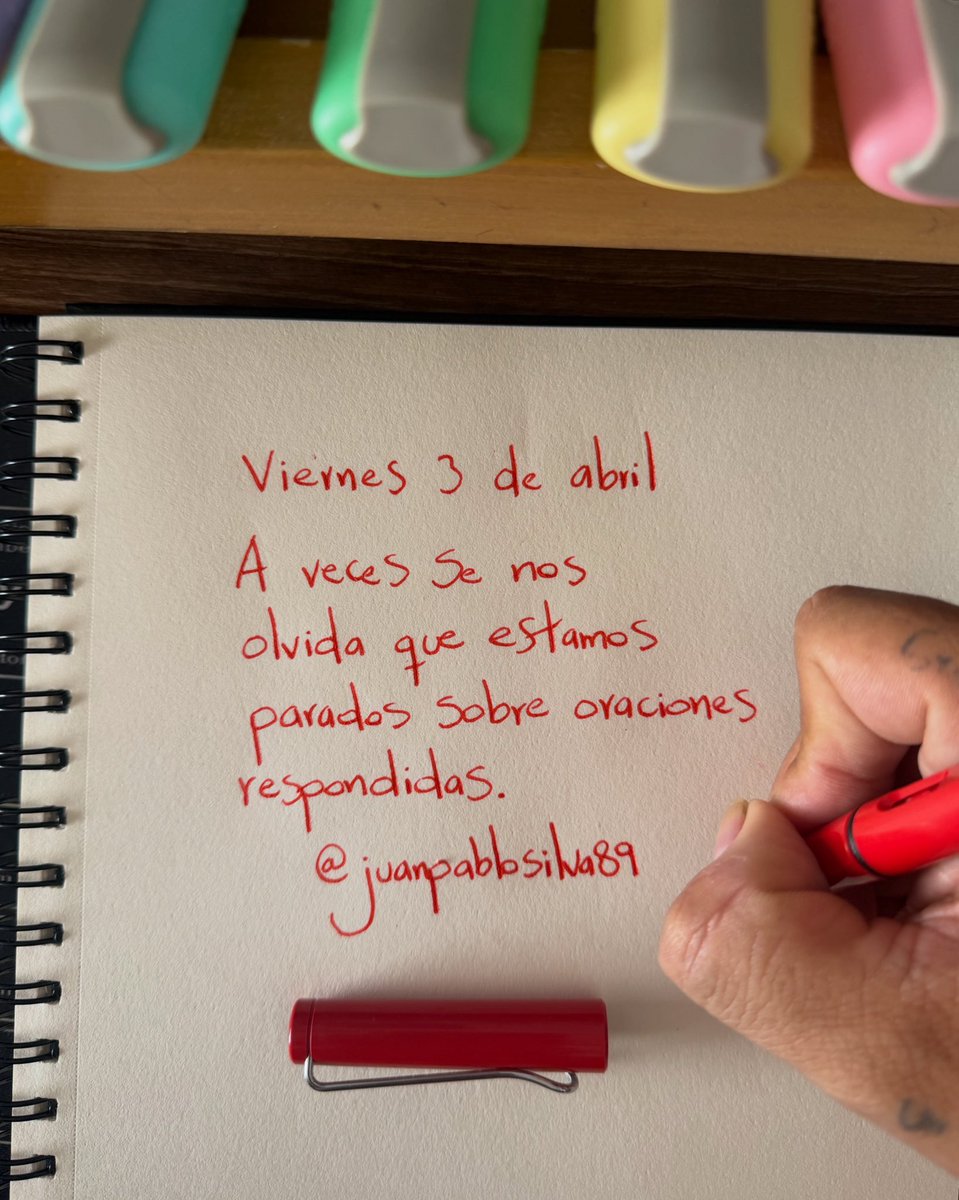 Viernes 3 de abril
A veces se nos
olvida que estamos
parados sobre oraciones
respondidas.
@juanpablosilva89